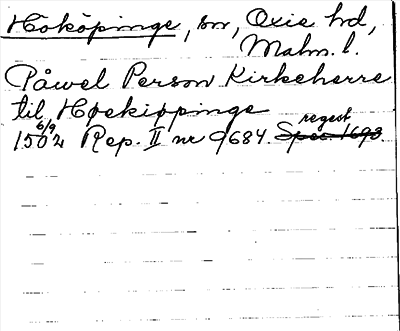 Hököpinge, sn, Oxie hd,
Malm. l.
Påwel Person Kirkeherre
til Høekippinge
1502 6/9 Rep. II nr 9684. Spec. 1693. regest